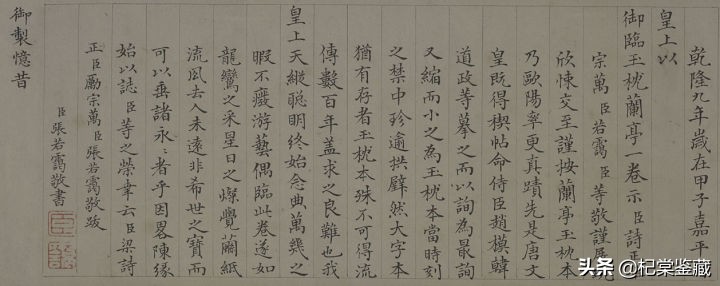 乾隆九年歲在甲子嘉平
皇上以
御臨玉枕蘭亭一卷示臣詩正
宗萬臣若靄臣等敬謹展觀
欣悚交至謹按蘭亭玉枕本
乃歐陽率更真蹟先是唐文
皇既得禊帖命侍臣趙模韓
道政等摹之而以詢為最詢
又縮而小之為玉枕本當時刻
之禁中珍逾拱璧然大字本
猶有存者玉枕本殊不可得流
傳數百年蓋求之良難也我
皇上天縱聰明終始念典萬幾之
暇不癈游藝偶臨此卷遂如
龍鸞之采星日之燦覺蘭紙
流風去人未遠非希世之寶而
可以垂諸永永者乎因畧陳緣
始以誌臣等之榮幸云臣梁詩
正臣勵宗萬臣張若靄敬跋
臣張若靄敬書
御製憶昔
头条 @杞棠鉴藏